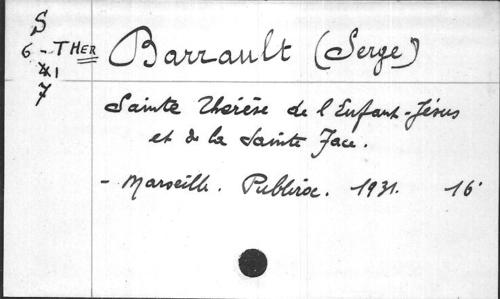 S
6 - THER Barrault (Serge)
41
7
Sainte Thérèse de l'Enfant-Jésus
et de la Sainte Face.
- Marseille. Publirox. 1931. 16°